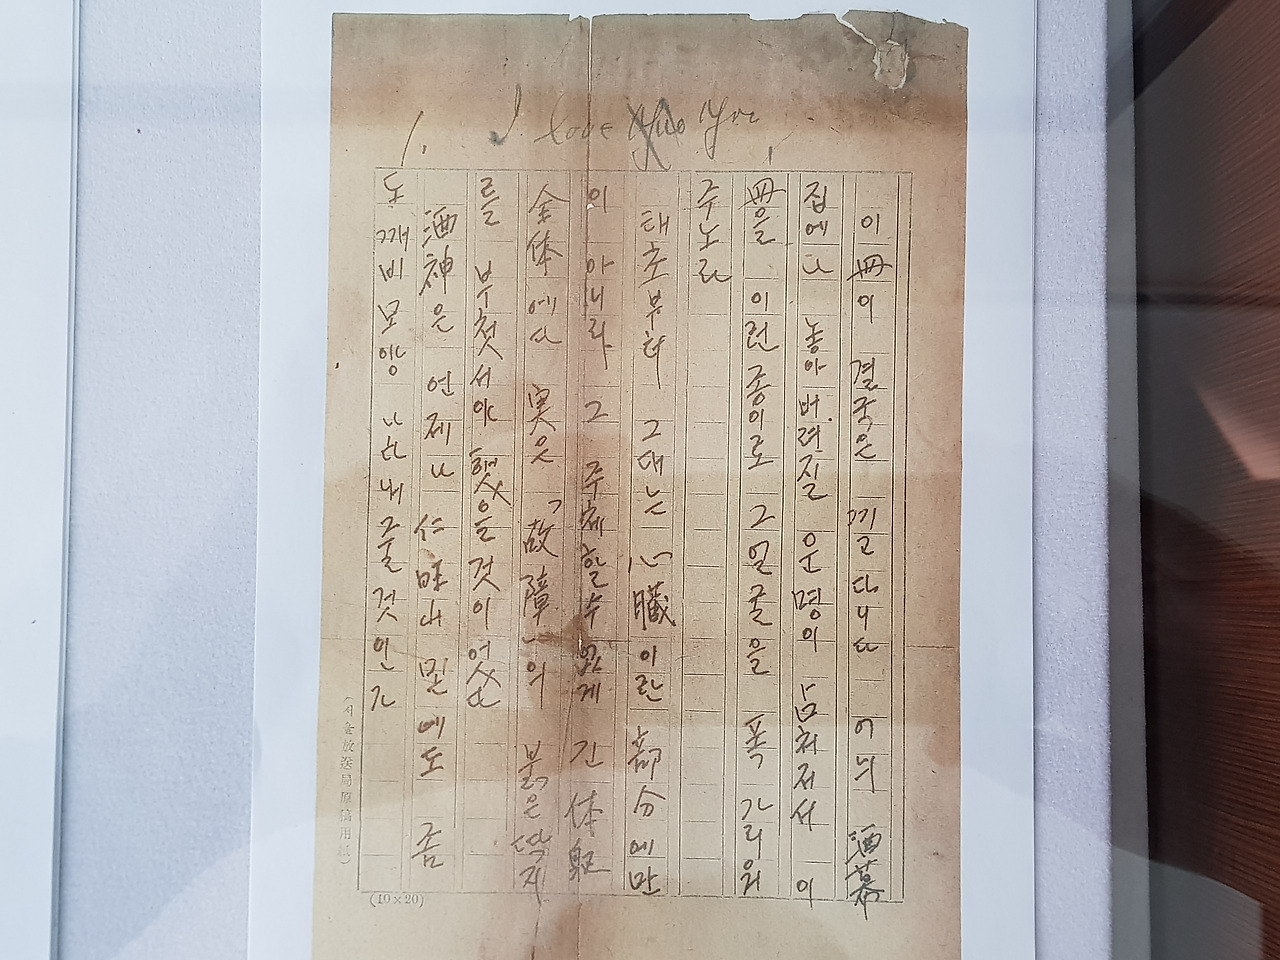 1. I love you You
이 册이 결국은 끼고 다니다 어늬 酒幕
집에나 놓아 버려질 운명이 넘처저서 이
册을 이런 종이로 그 얼굴을 폭 가리워
주노라
태초부터 그대는 心臟이란 部分에만
이 아니라 그 주체할수 없게 긴 体軀
全体에다 実은 "故障"의 붉은 딱지
를 부첫서야 했을것이었다
酒神은 언제나 仁味가 믿에도 좀
도깨비 모양 나타내 줄 것인가
서울放送局原稿用紙
(10×20)